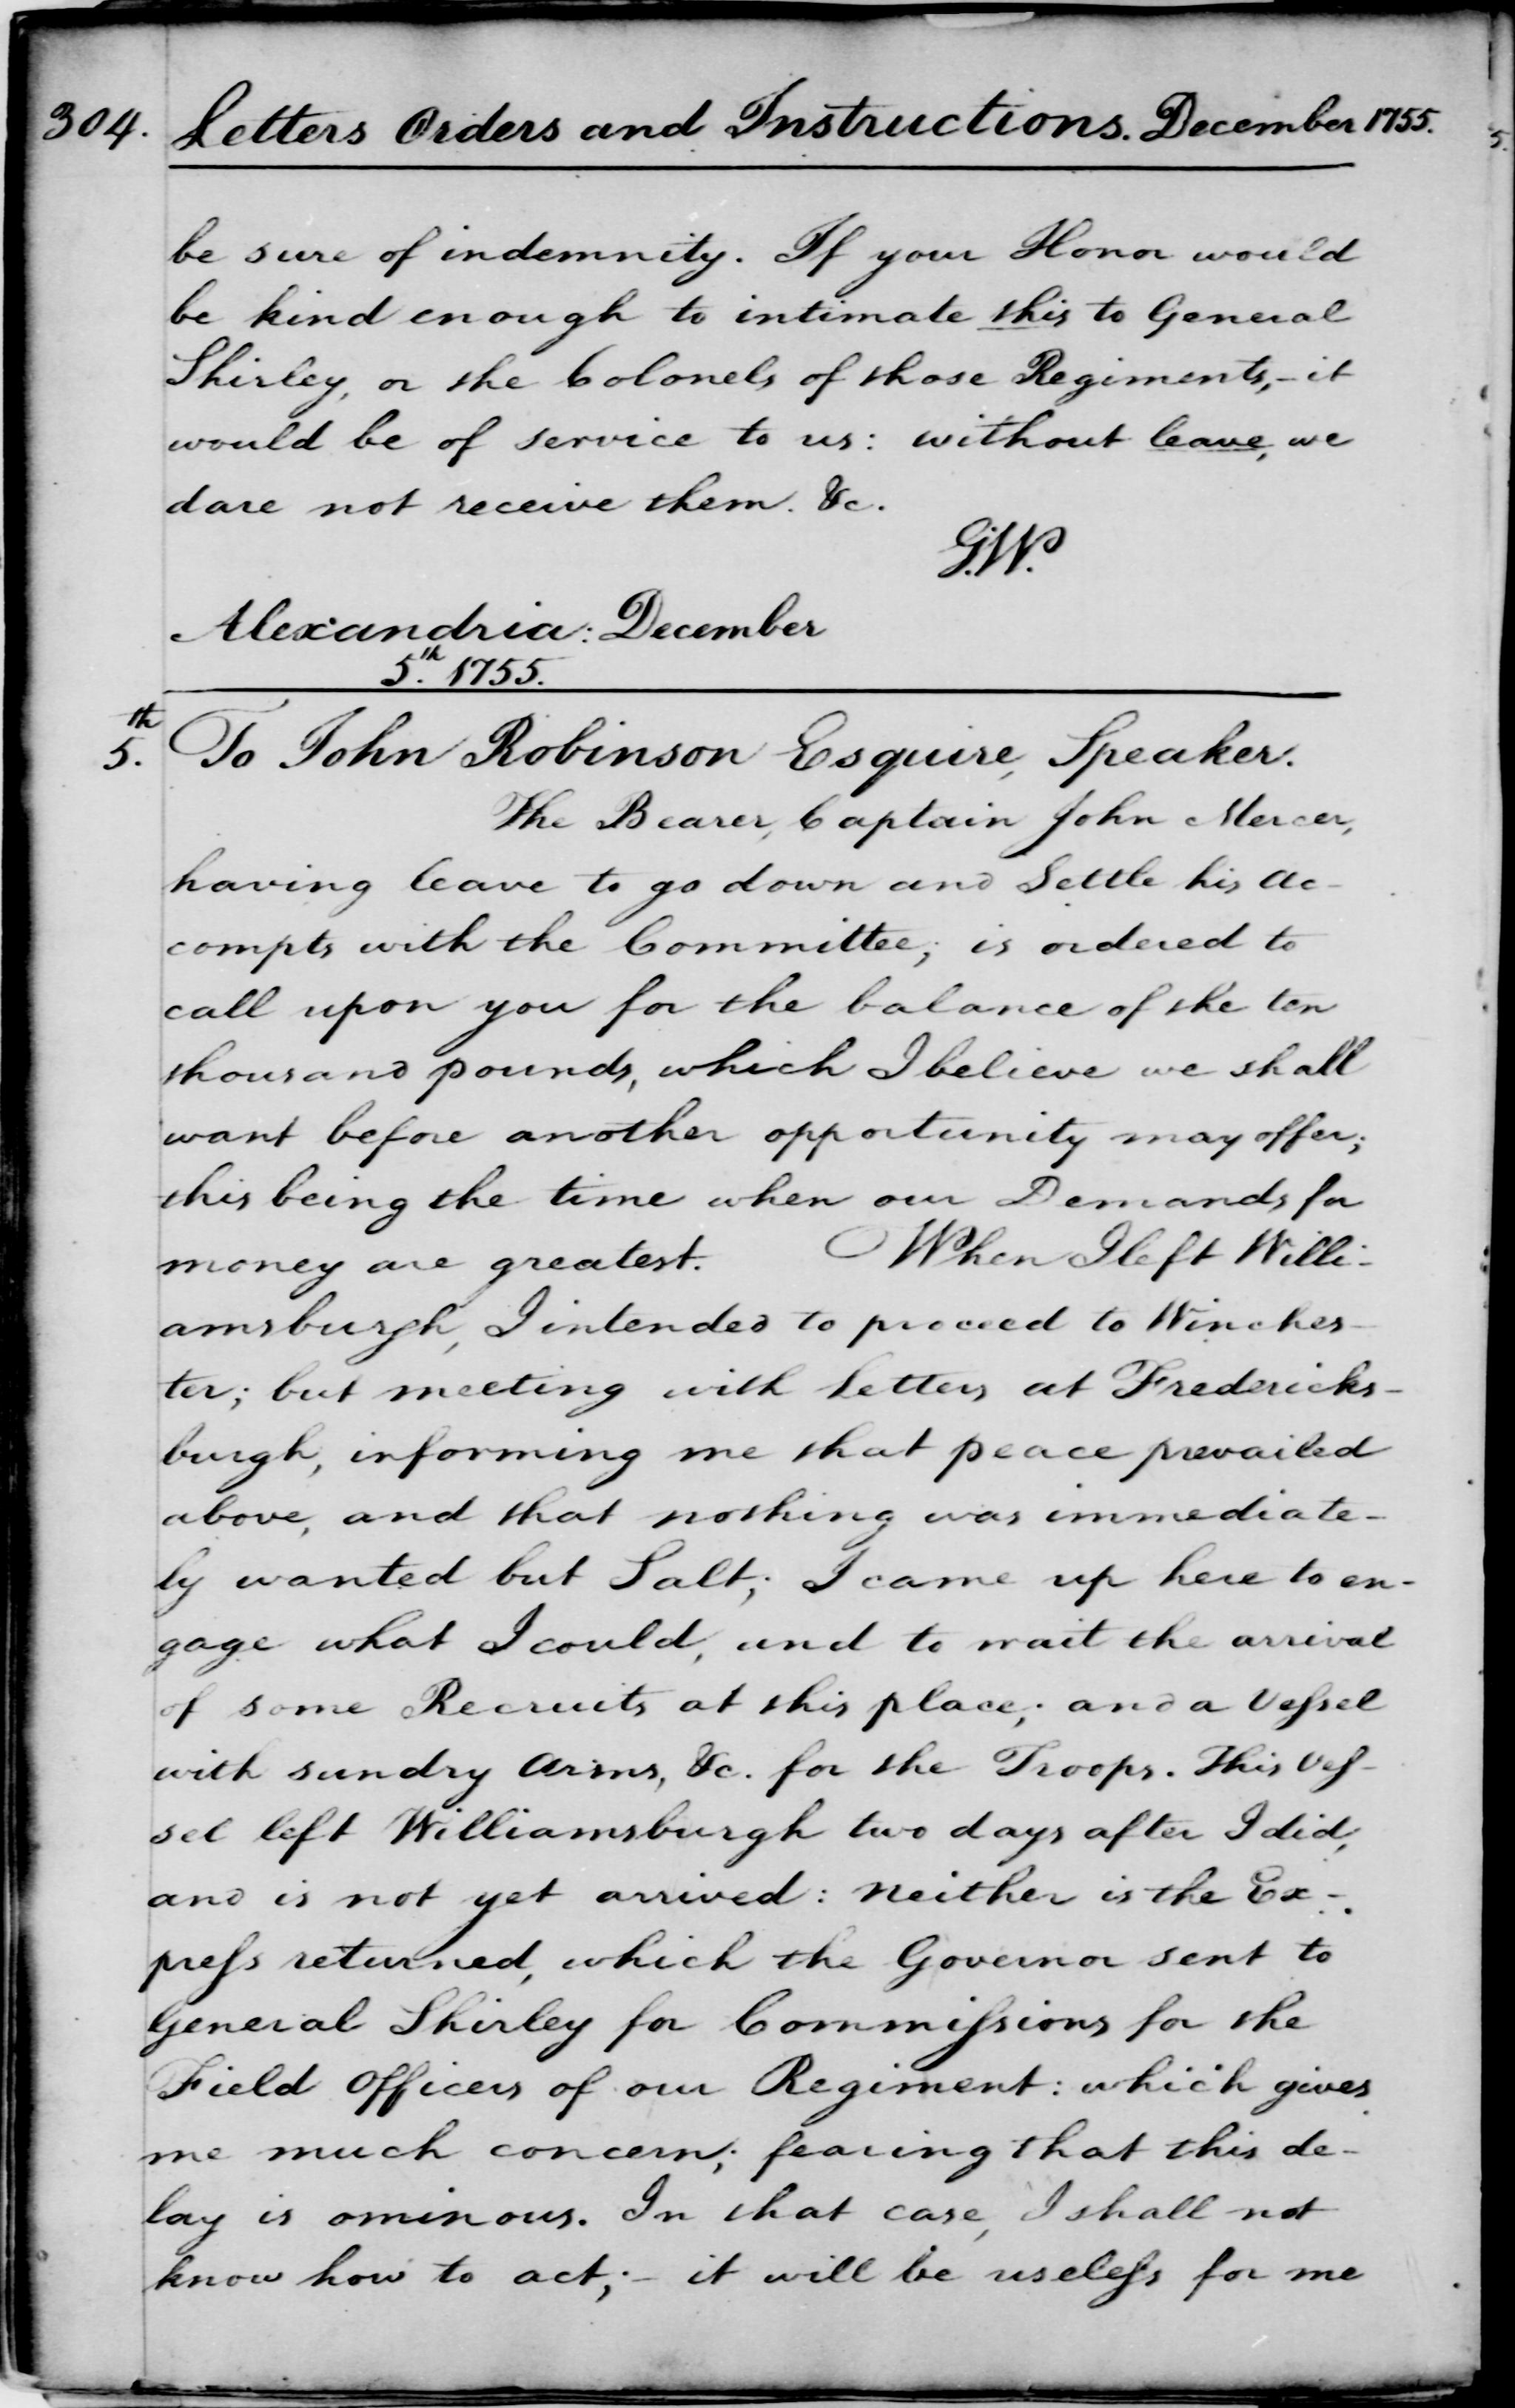 304. Letters Orders and Instructions. December 1755.
be sure of indemnity. If your Honor would
be kind enough to intimate this to General
Shirley, or the Colonels of those Regiments,- it
would be of service to us: without leave, we
dare not receive them. &c.
G.W.
Alexandria: December
5.th 1755.
5.th To John Robinson Esquire, Speaker.
The Bearer, Captain John Mercer,
having leave to go down and Settle his Ac-
compts with the Committee; is ordered to
call upon you for the balance of the ten
thousand pounds, which I believe we shall
want before another opportunity may offer;
this being the time when our Demands for
money are greatest. When I left Willi-
amsburgh, I intended to proceed to Winches-
ter; but meeting with Letters at Fredericks-
burgh, informing me that peace prevailed
above, and that nothing was immediate-
ly wanted but Salt; I came up here to en-
gage what I could, and to wait the arrival
of some Recruits at this place; and a Veſsel
with sundry Arms, &c. for the Troops. This Veſ-
sel left Williamsburgh two days after I did,
and is not yet arrived: neither is the Ex-
preſs returned, which the Governor sent to
General Shirley for Commiſsions for the
Field Officers of our Regiment: which gives
me much concern; fearing that this de-
lay is ominous. In that case, I shall not
know how to act;- it will be useleſs for me